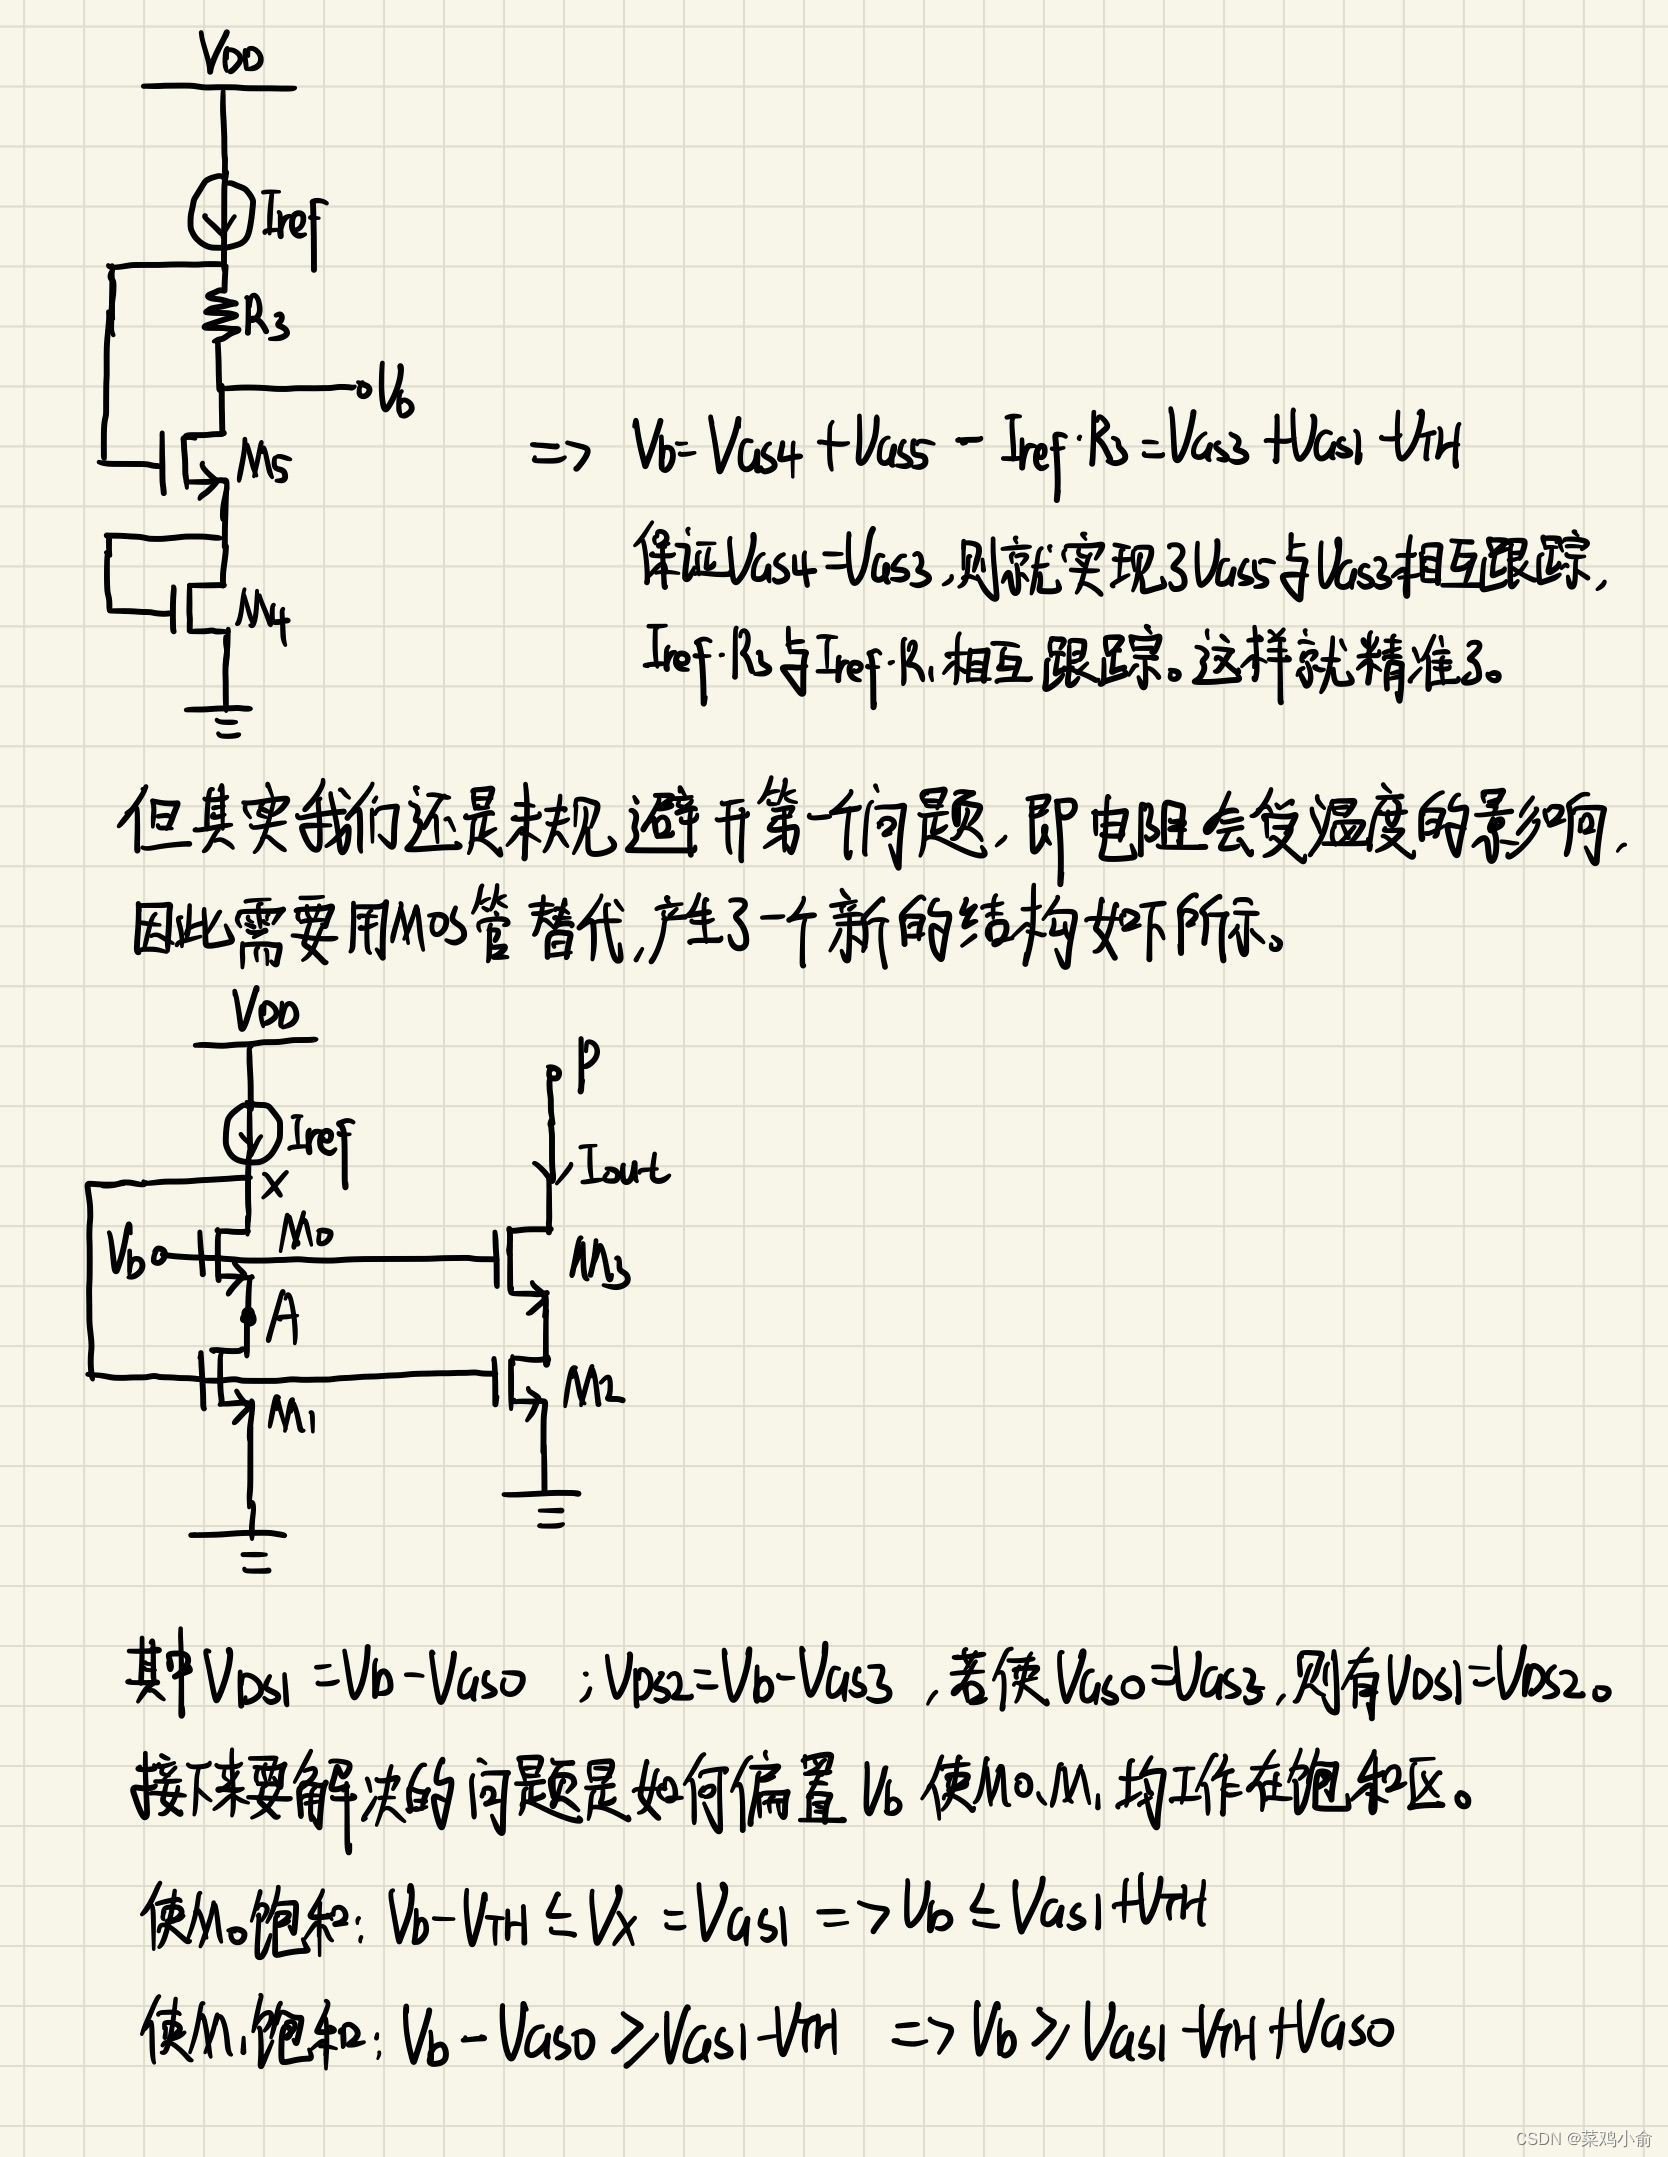 VDD
Iref
R3
Vb
M5
=> Vb=VGS4+VGS5-Iref·R3=VGS3+VGS1-VTH
保证VGS4=VGS3,则就实现了VGS5与VGS3相互跟踪,
M4
Iref·R3与Iref·R1相互跟踪。这样就精准了。
但其实我们还是未规避开第一个问题,即电阻会受温度的影响,
因此需要用MOS管替代,产生了一个新的结构如下所示。
VDD
P
Iref
Iout
X
M0
Vb
M3
A
M2
M1
其中VDS1=Vb-VGS0;VDS2=Vb-VGS3,若使VGS0=VGS3,则有VDS1=VDS2。
接下来要解决的问题是如何偏置Vb使M0、M1均工作在饱和区。
使M0饱和:Vb-VTH≤VX=VGS1=>Vb≤VGS1+VTH
使M1饱和:Vb-VGS0≥VGS1-VTH=>Vb≥VGS1-VTH+VGS0
CSDN @菜鸡小俞